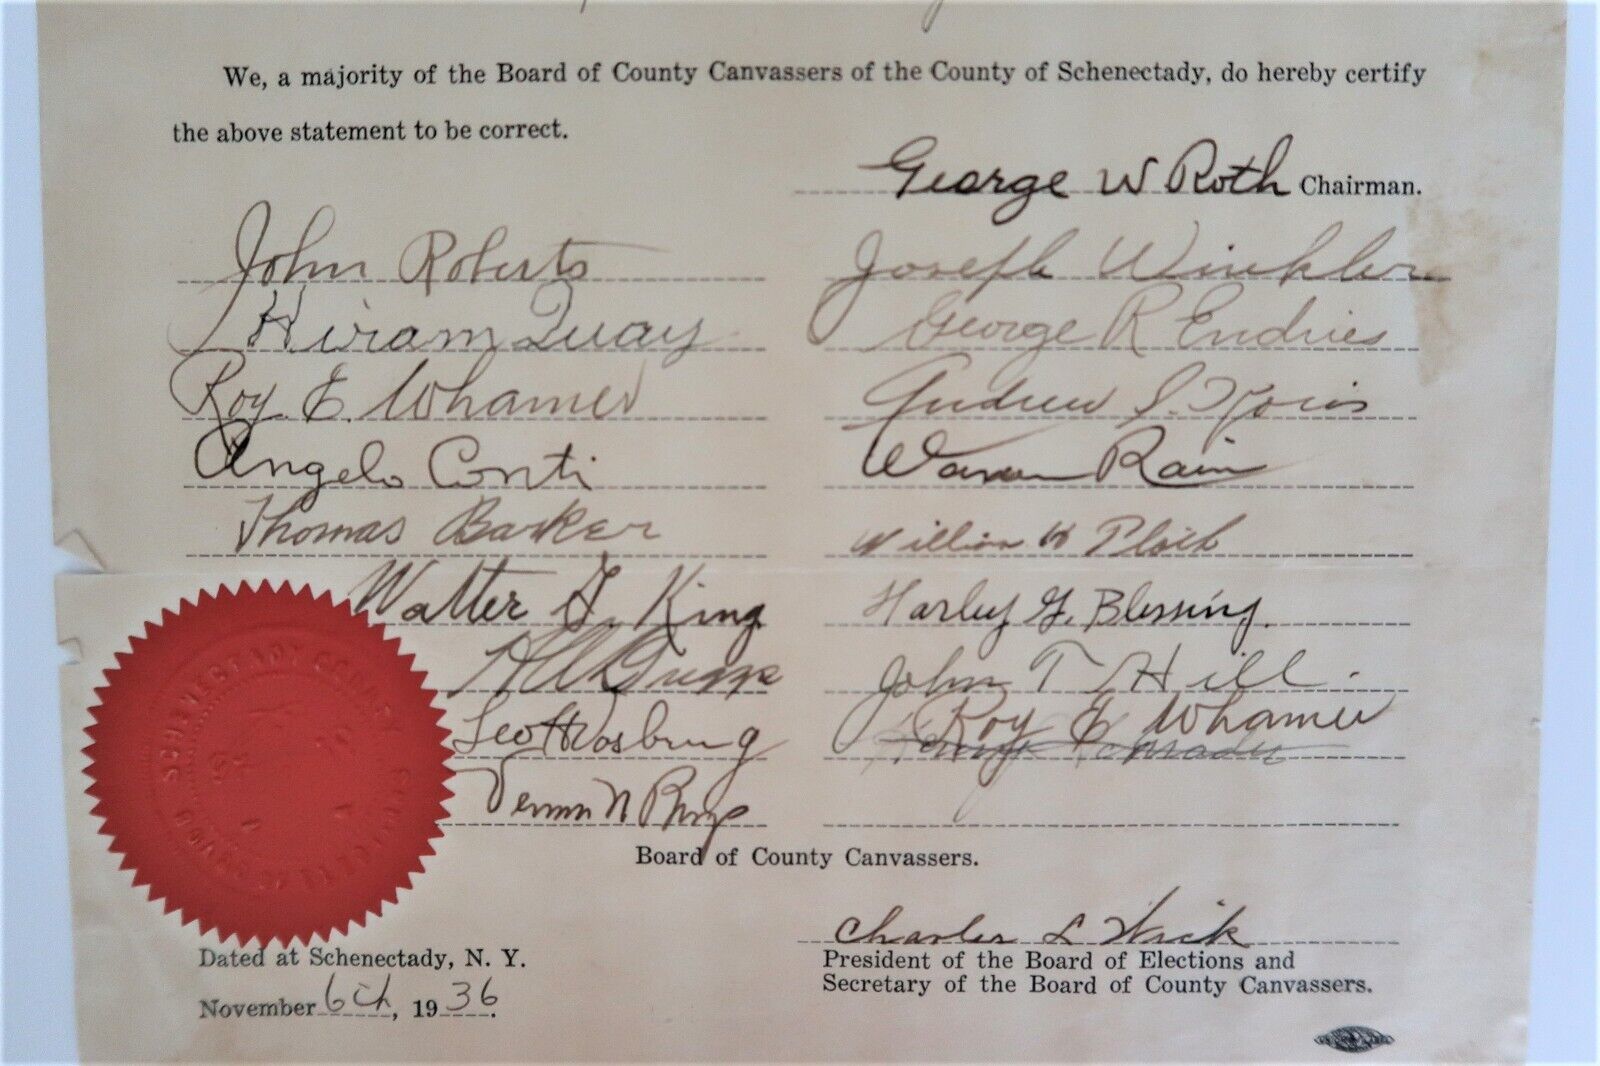 We, a majority of the Board of County Canvassers of the County of Schenectady, do hereby certify
the above statement to be correct.
George W Roth Chairman.
John Roberts
Joseph Winkler
Hiram Quay
George R Endries
Roy E. Whamer
Andrew S.
Angelo Conti
Warren Rain
Thomas Barker
William H
Walter G. King
Harley G. Blessing.
John T Hill.
Leo H Vosburg
Roy E Whamer
Vernon N
Board of County Canvassers.
SCHENECTADY COUNTY
BOARD OF ELECTIONS
Charles L
Dated at Schenectady, N. Y.
President of the Board of Elections and
Secretary of the Board of County Canvassers.
November 6th, 1936.